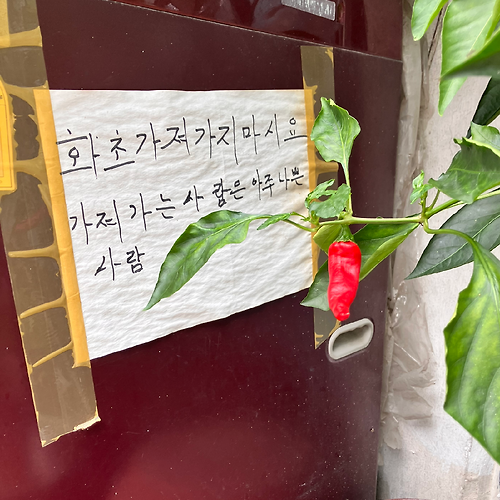 화초가져가지마시요
가져가는 사람은 아주 나쁜
사람